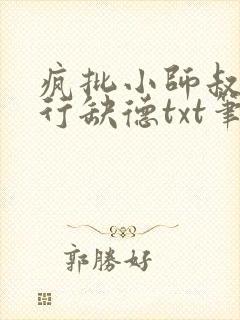 疯批小師叔
行缺德txt筆
郭勝好